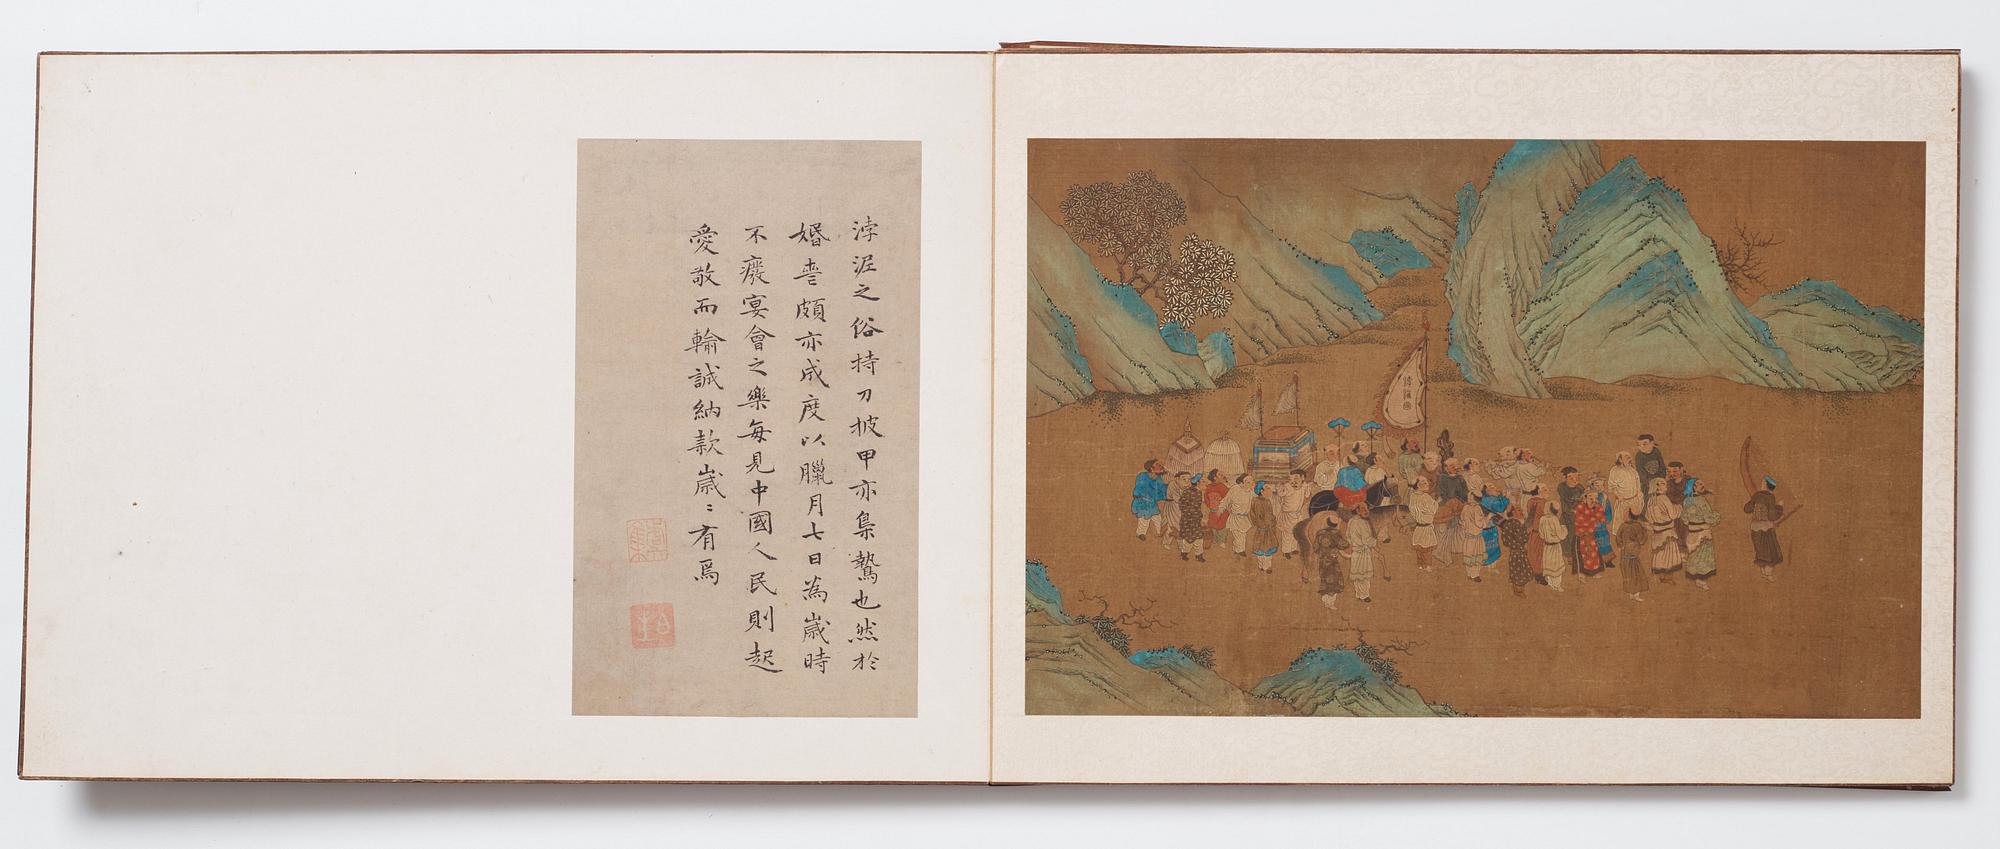 浡泥之俗持刀披甲亦梟鷙也然於
婚喪頗亦成度以臘月七日為歲時
不廢宴會之樂每見中國人民則起
愛敬而輸誠納款歲〻有焉
浡泥國